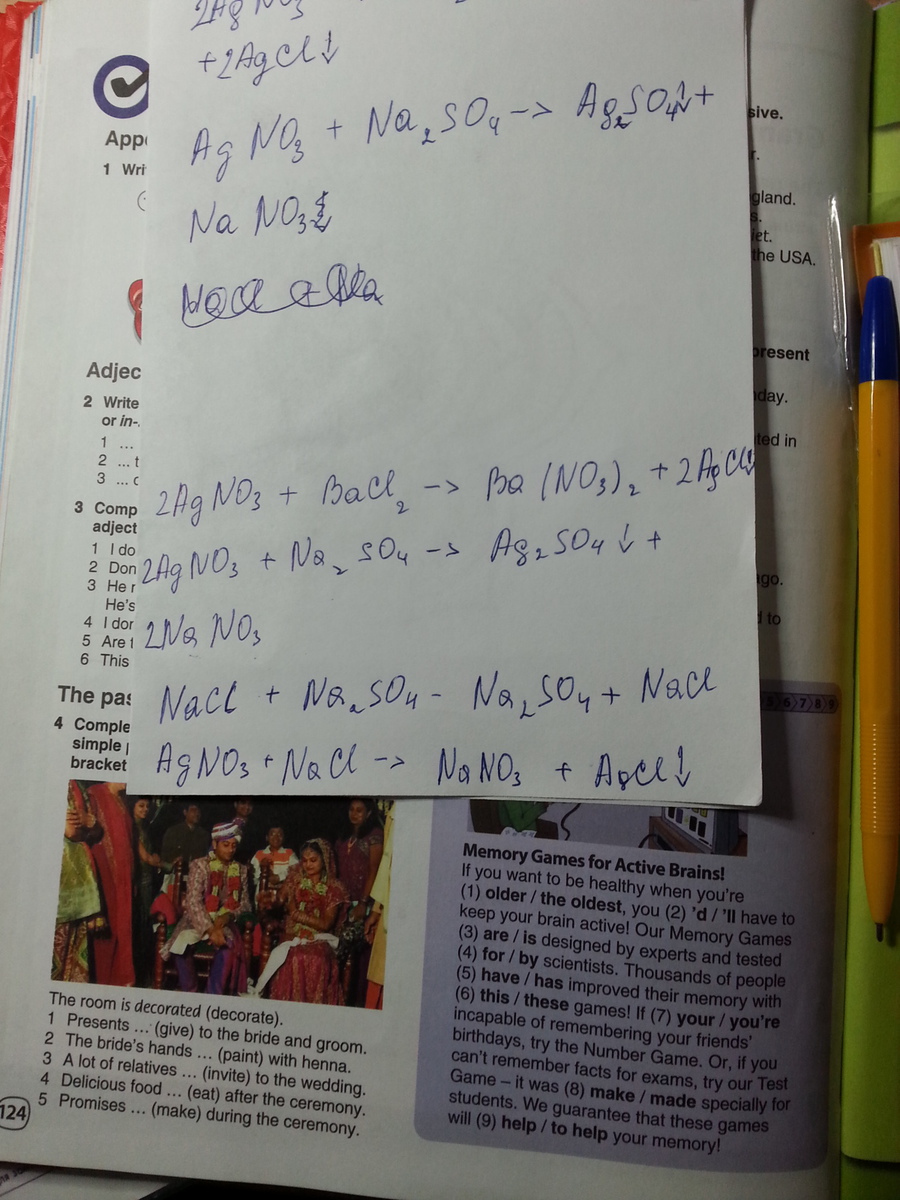 2AgNO3
+2AgCl↓
AgNO3 + Na2SO4 -> Ag2SO4↓ +
NaNO3
2AgNO3 + BaCl2 -> Ba(NO3)2 + 2AgCl↓
2AgNO3 + Na2SO4 -> Ag2SO4↓ +
2NaNO3
NaCl + Na2SO4 - Na2SO4 + NaCl
AgNO3 + NaCl -> NaNO3 + AgCl↓
App
1 Wri
Adjec
2 Write
or in-.
1 ...
2 ... t
3 ... c
3 Comp
adject
1 I do
2 Don
3 He r
He's
4 I dor
5 Are t
6 This
The pas
4 Comple
simple
bracket
The room is decorated (decorate).
1 Presents ... (give) to the bride and groom.
2 The bride's hands ... (paint) with henna.
3 A lot of relatives ... (invite) to the wedding.
4 Delicious food ... (eat) after the ceremony.
5 Promises ... (make) during the ceremony.
124
sive.
r.
gland.
s.
iet.
the USA.
present
day.
ted in
ago.
d to
6 7 8 9
Memory Games for Active Brains!
If you want to be healthy when you're
(1) older / the oldest, you (2) 'd / 'll have to
keep your brain active! Our Memory Games
(3) are / is designed by experts and tested
(4) for / by scientists. Thousands of people
(5) have / has improved their memory with
(6) this / these games! If (7) your / you're
incapable of remembering your friends'
birthdays, try the Number Game. Or, if you
can't remember facts for exams, try our Test
Game – it was (8) make / made specially for
students. We guarantee that these games
will (9) help / to help your memory!